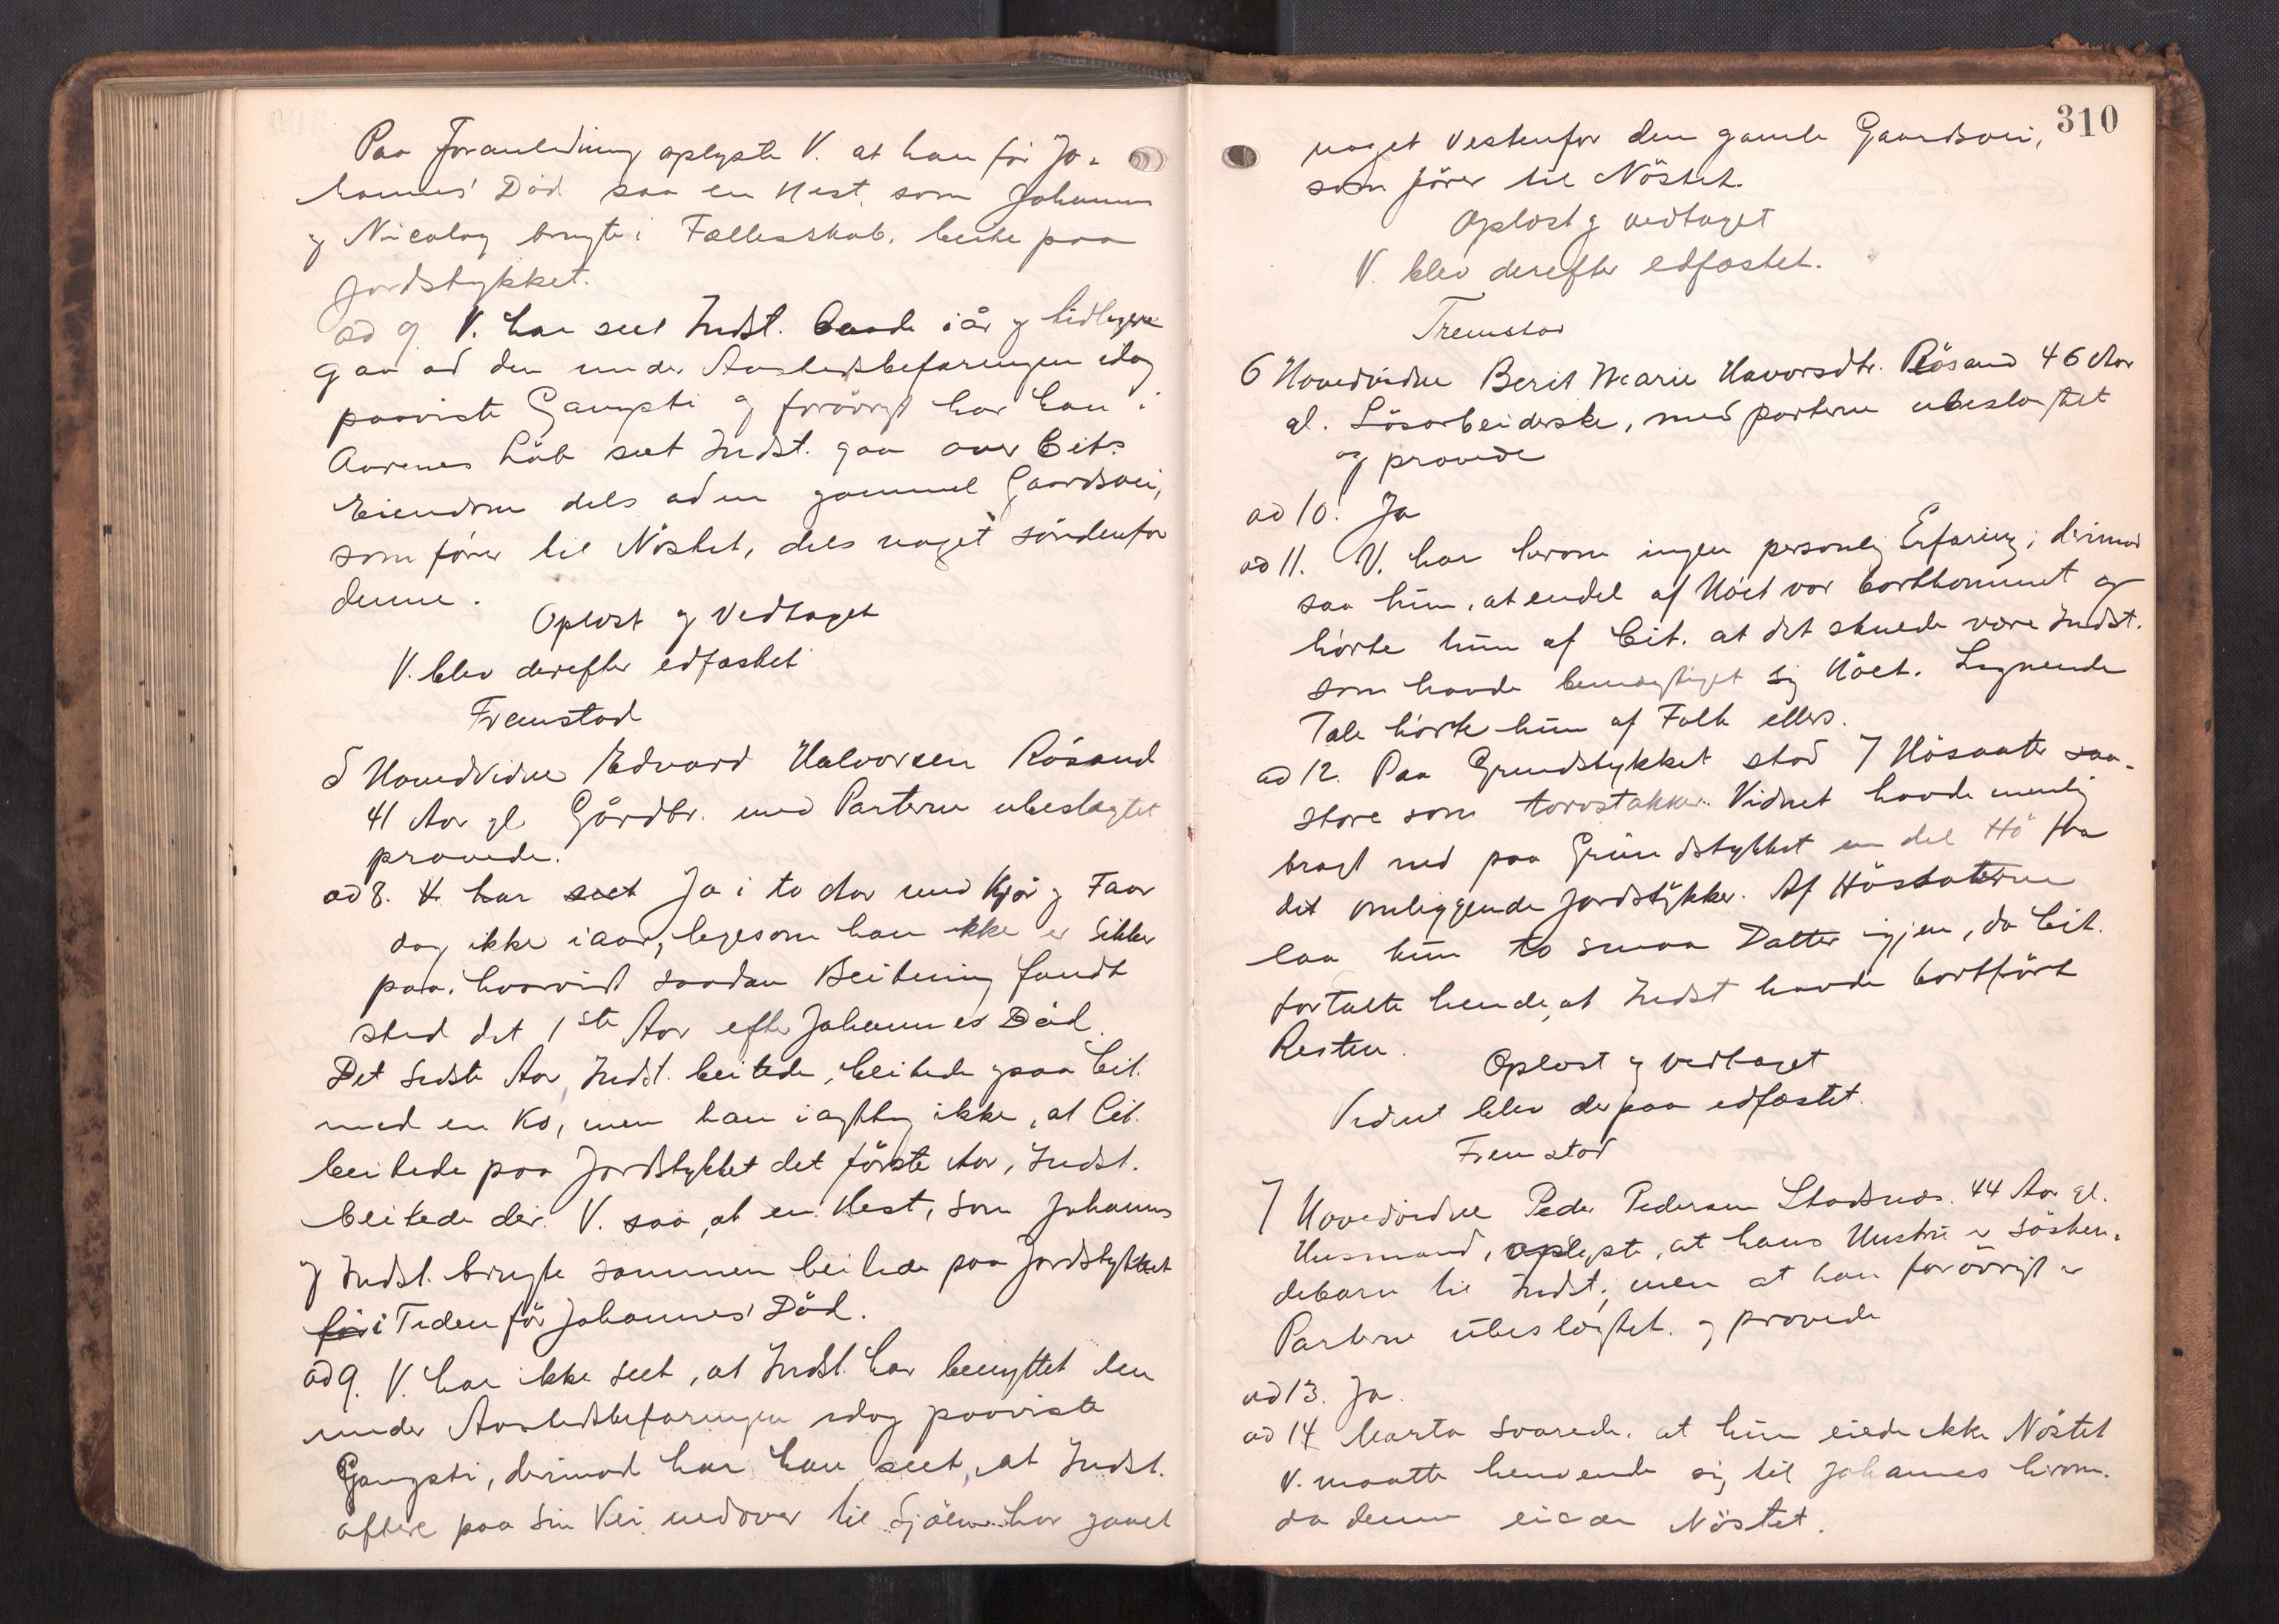 Paa Foranledning oplyste V. at han før Jo-
hannes' Død saa en Hest, som Johannes
og Nicolay brugte i Fællesskab, beite paa
Jordstykket.
ad 9. V. har seet Indst. baade iår og tidligere
gaa ad den under Aastedsbefaringen idag
paaviste Gangsti og forøvrigt har han i
Aarenes Løb seet Indst. gaa over Cit.s
Eiendom dels ad en gammel Gaardsvei,
som fører til Nøstet, dels noget søndenfor
denne.
Oplæst og Vedtaget
V. blev derefter edfæstet
Fremstod
5 Hovedvidne Edvard Halvorsen Røsand
41 Aar gl. Gårdbr. med Parterne ubeslægtet
provede.
ad 8. V. har seet Ja i to Aar med Kjør og Faar
dog ikke iaar, ligesom han ikke er sikker
paa, hvorvidt saadan Beitning fandt
sted det 1ste Aar efter Johannes Død.
Det sidste Aar, Indst. beitede, beitede ogsaa Cit.
med en Ko, men han iagttog ikke, at Cit.
beitede paa Jordstykket det første Aar, Indst.
beitede der. V. saa, at en Hest, som Johannes
og Indst. brugte sammen beitede paa Jordstykket
før i Tiden før Johannes' Død.
ad 9. V. har ikke seet, at Indst. har benyttet den
under Aastedsbefaringen idag paaviste
Gangsti, derimod har han seet, at Indst.
oftere paa sin Vei nedover til Sjøen har gaaet
310
noget Vestenfor den gamle Gaardsvei,
som fører til Nöstet.
Oplæst og vedtaget
V. blev derefter edfæstet.
Fremstod
6 Hovedvidne Berit Marie Havorsdtr. Røsand 46 Aar
gl. Løsarbeiderske, med parterne ubeslægtet
og provede
ad 10. Ja
ad 11. V. har herom ingen personlig Erfaring; derimod
saa hun, at endel af Høet var bortkommet og
hørte hun af Cit. at det skulde være Indst.
som havde bemægtiget sig Høet. Lignende
Tale hørte hun af Folk ellers.
ad 12. Paa Grundstykket stod 7 Høsaater saa-
store som torvstakker. Vidnet havde nemlig
bragt ned paa Grundstykket en del Hø fra
det omliggende Jordstykker. Af Høsaaterne
laa hun to smaa Datter igjen, da Cit.
fortalte hende, at Indst havde bortført
Resten.
Oplæst og vedtaget
Vidnet blev derpaa edfæstet.
Fremstod
7 Hovedvidne Peder Pedersen Stadsnæs. 44 Aar gl.
Husmand, oplyste, at hans Hustru er Søsken-
debarn til Indst., men at han forøvrigt er
Parterne ubeslægtet. og provede
ad 13. Ja.
ad 14 Marta svarede, at hun eiede ikke Nöstet
V. maatte henvende sig til Johannes herom.
da denne eier Nöstet.